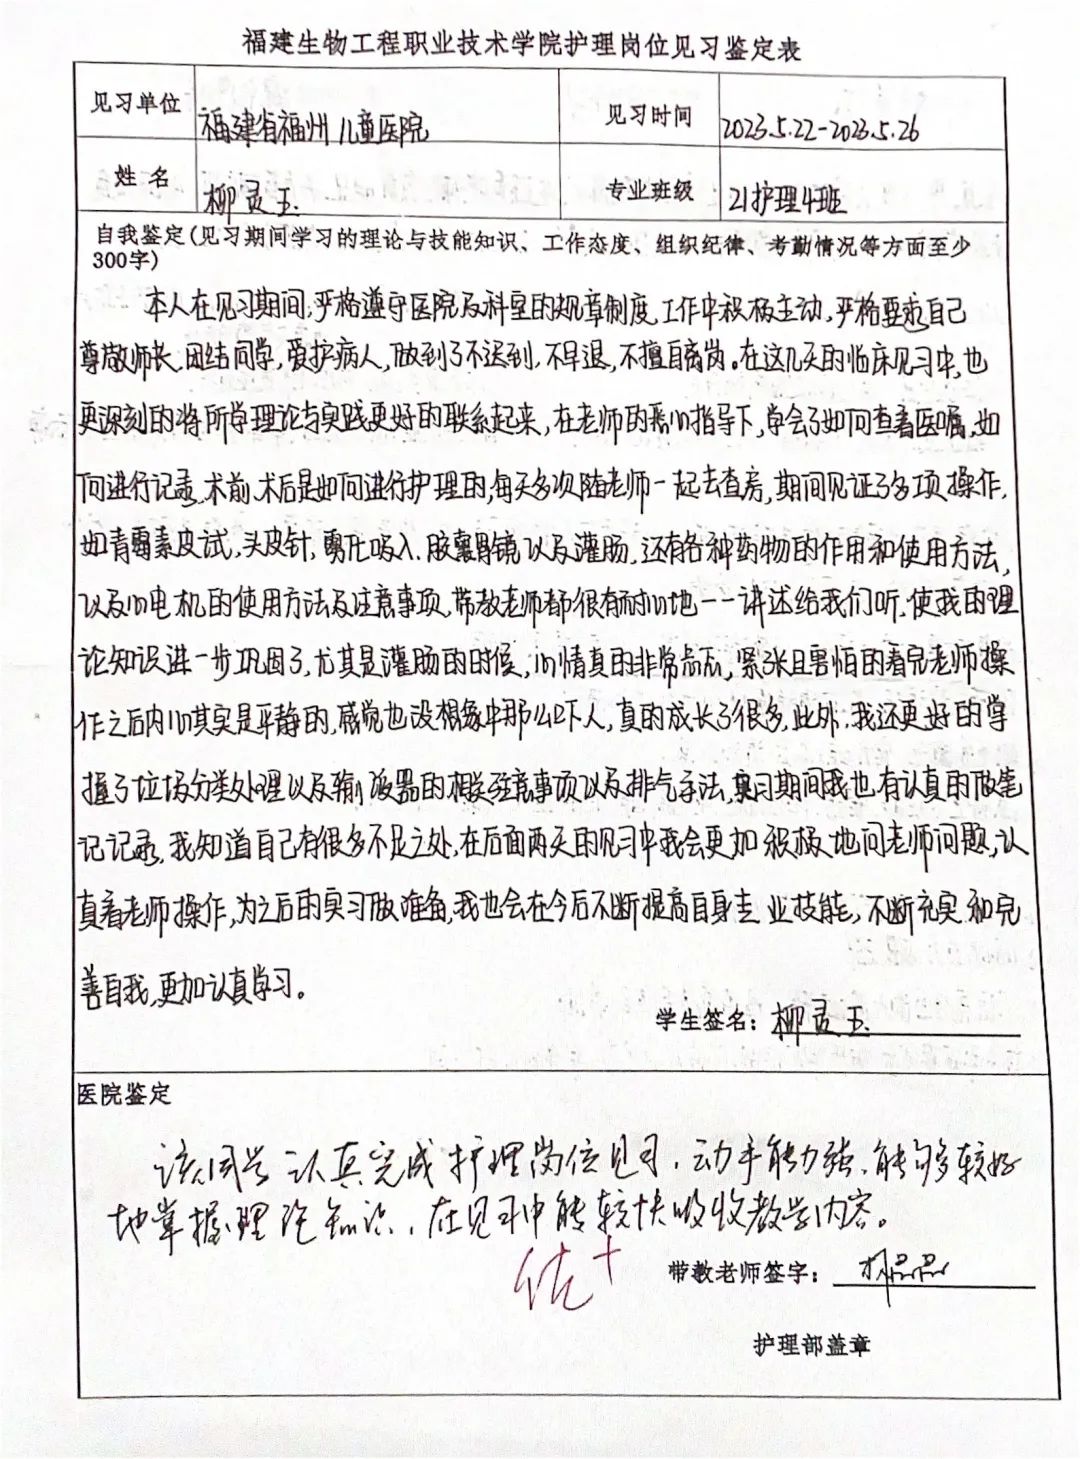 福建生物工程职业技术学院护理岗位见习鉴定表
见习单位 福建省福州儿童医院 见习时间 2023.5.22-2023.5.26
姓名 柳灵玉 专业班级 21护理4班
自我鉴定(见习期间学习的理论与技能知识、工作态度、组织纪律、考勤情况等方面至少
300字)
本人在见习期间,严格遵守医院及科室的规章制度,工作中积极主动,严格要求自己
尊敬师长,团结同学,爱护病人,做到了不迟到,不早退,不擅自离岗。在这几天的临床见习中,也
更深刻的将所学理论与实践更好的联系起来,在老师的悉心指导下,学会了如何查看医嘱,如
何进行记录,术前,术后是如何进行护理的,每天多次随老师一起去查房,期间见证了多项操作,
如青霉素皮试,头皮针,雾化吸入,胶囊胃镜以及灌肠,还有各种药物的作用和使用方法,
以及心电机的使用方法及注意事项,带教老师都很有耐心地一一讲述给我们听,使我的理
论知识进一步巩固了,尤其是灌肠的时候,心情真的非常忐忑,紧张且害怕的看完老师操
作之后内心其实是平静的,感觉也没想象中那么吓人,真的成长了很多,此外,我还更好的掌
握了垃圾分类处理以及输液器的相关注意事项以及排气手法,见习期间我也有认真的做笔
记记录,我知道自己有很多不足之处,在后面两天的见习中我会更加积极地问老师问题,认
真看老师操作,为之后的实习做准备,我也会在今后不断提高自身专业技能,不断充实和完
善自我,更加认真学习。
学生签名: 柳灵玉
医院鉴定
该同学认真完成护理岗位见习,动手能力强,能够较好
地掌握理论知识,在见习中能较快吸收教学内容。
优+
带教老师签字:
护理部盖章